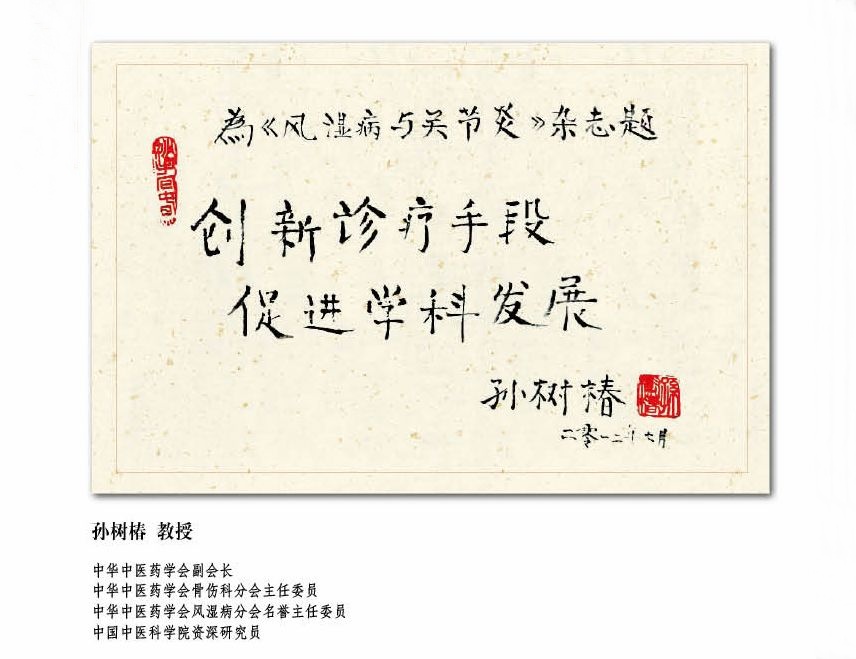 為《风湿病与关节炎》杂志题
创新诊疗手段
促进学科发展
孙树椿
二零一二年七月
孙树椿 教授
中华中医药学会副会长
中华中医药学会骨伤科分会主任委员
中华中医药学会风湿病分会名誉主任委员
中国中医科学院资深研究员